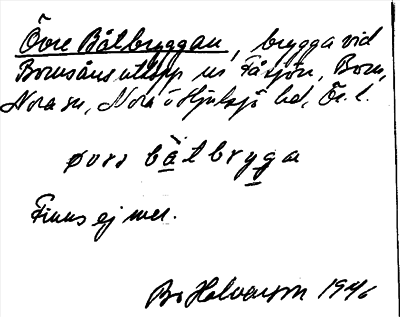 Övre Båtbryggan, brygga vid
Bornsåns utlopp ur Fåsjön, Born,
Nora sn, Nora o Hjulsjö bd, Ör. l.
øvrə båtbryga
Finns ej mer.
Bo Halvarson 1946